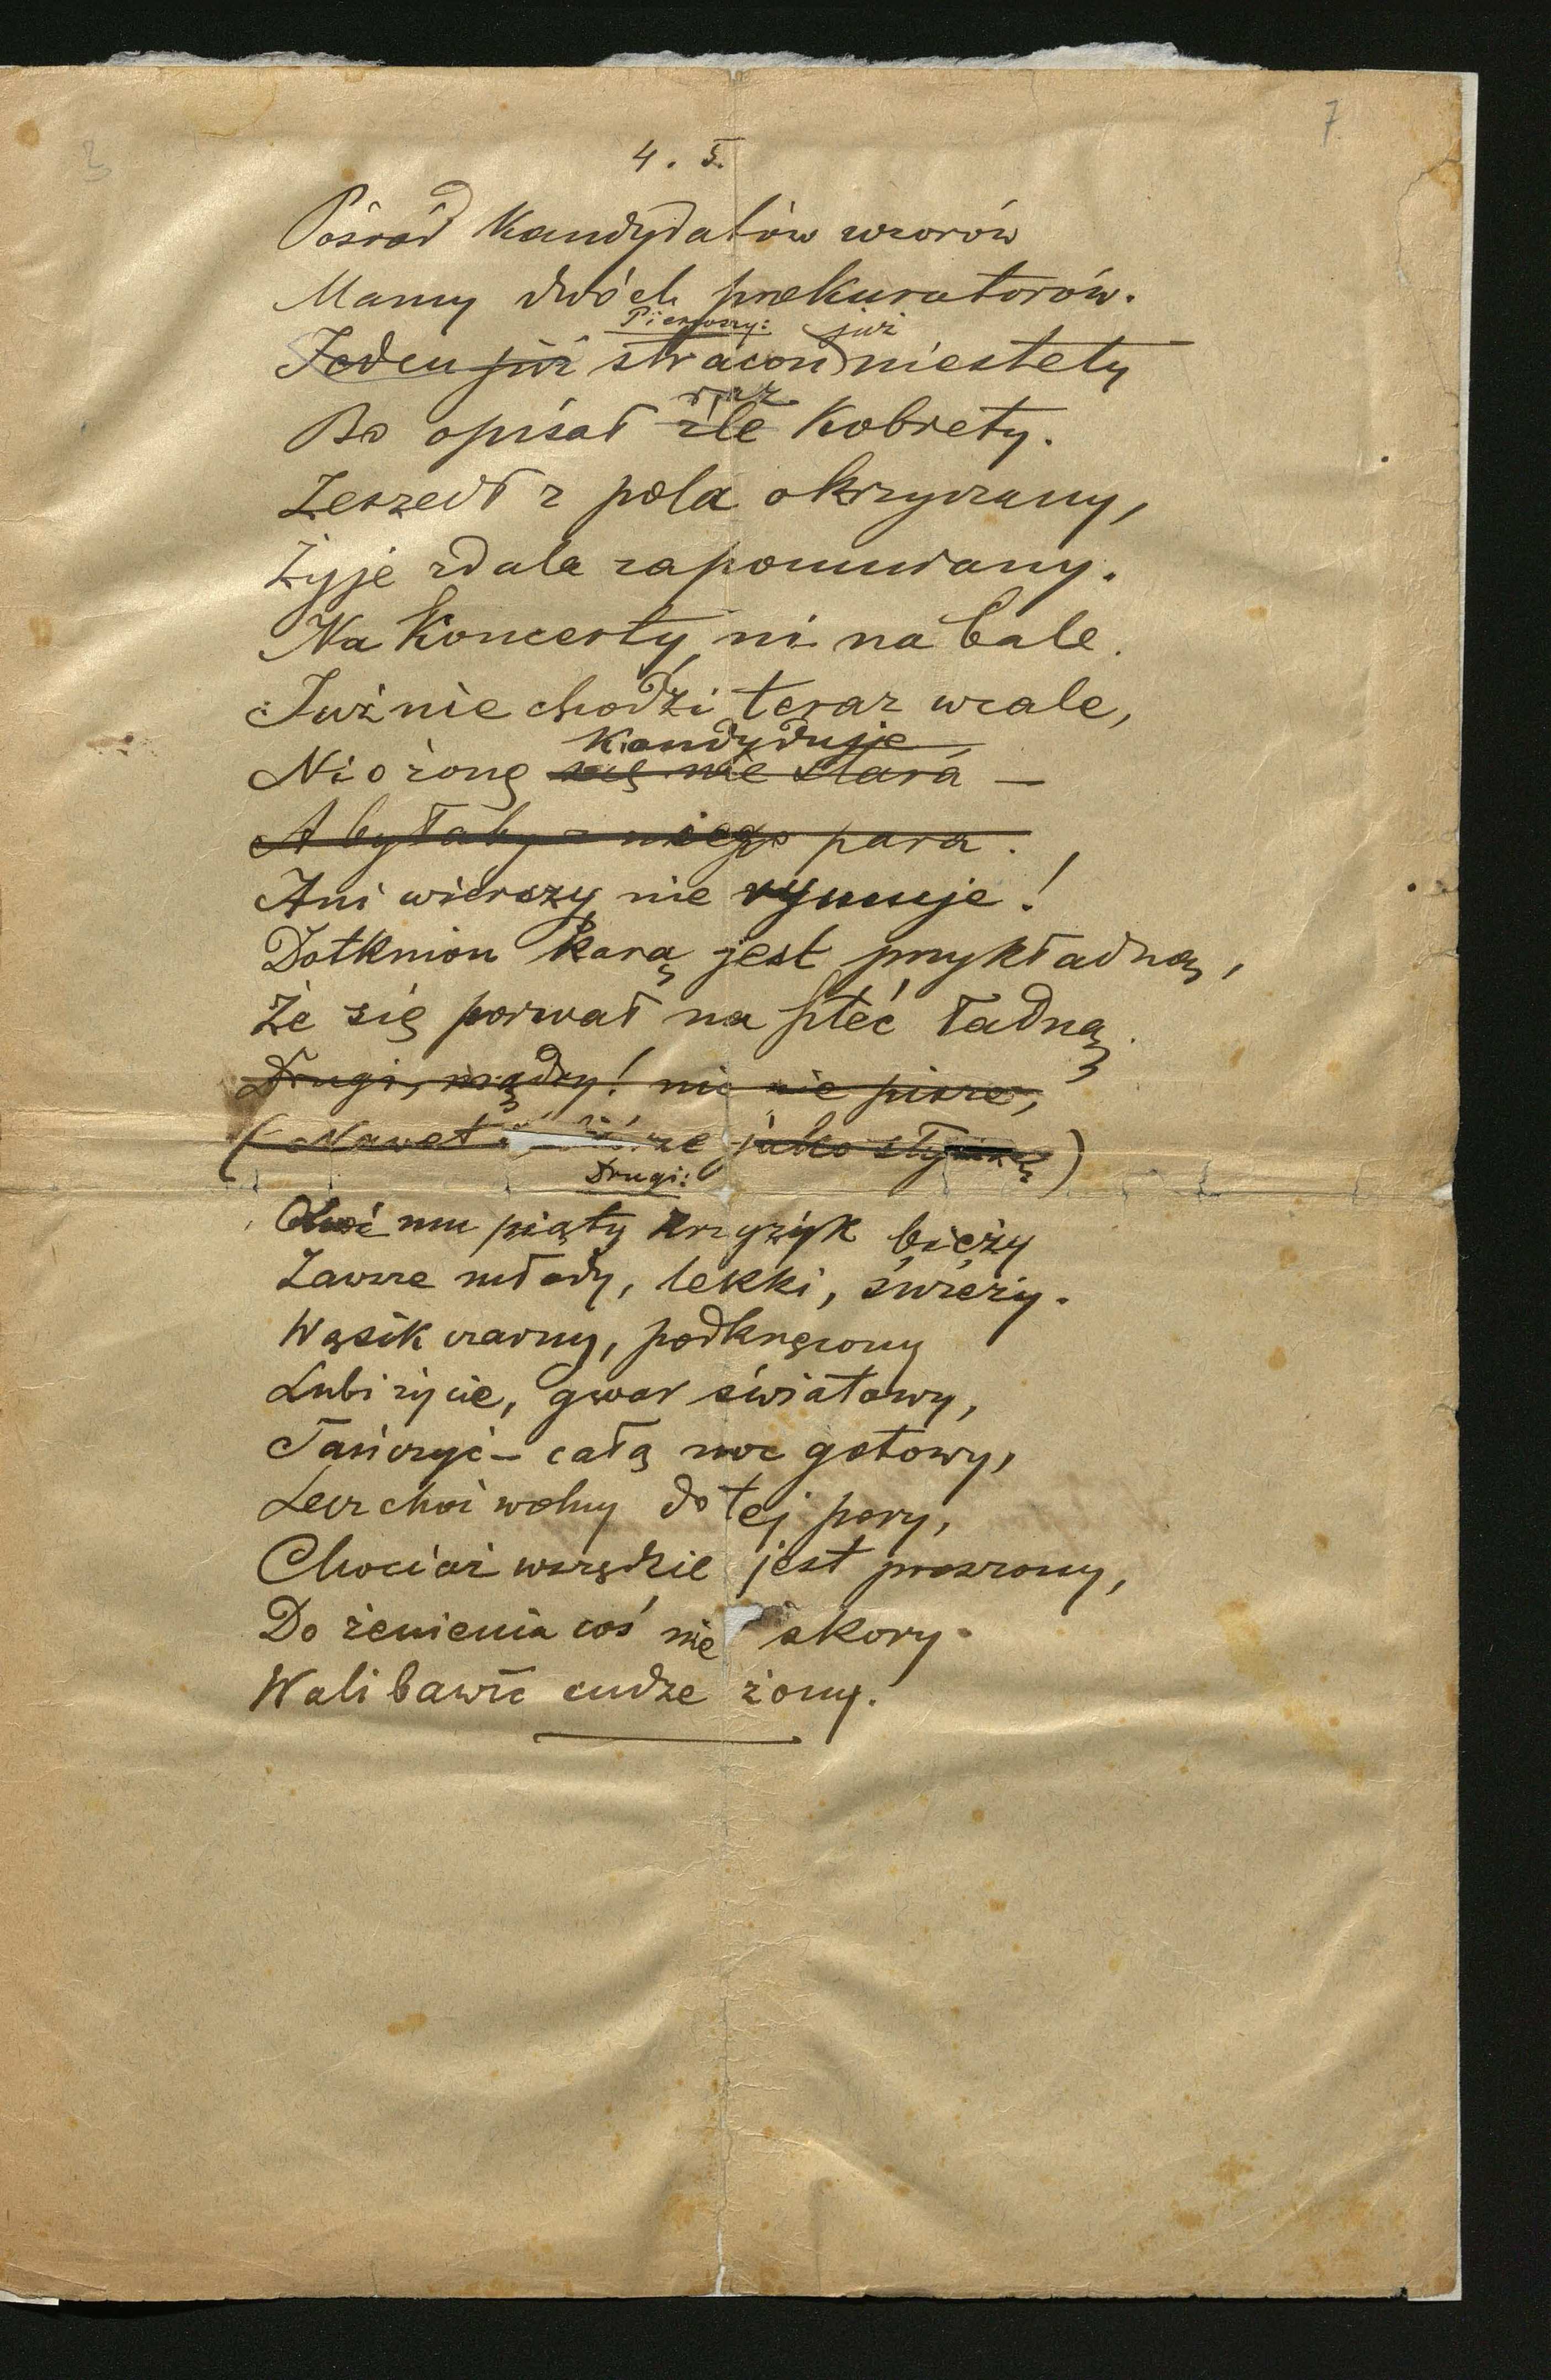 3
7
4. 5.
Pośród Kandydatów wzorów
Mamy dwóch prokuratorów.
Pierwszy: już
Jeden już stracon niestety
raz
Bo opisał źle Kobiety.
Zeszedł z pola okrzyczany,
Żyje zdala zapomniany.
Na Koncerty, ni na bale.
Już nie chodzi teraz wcale,
Kandyduje
Ni o żonę się nie stara —
A byłaby z niego para.
Ani wierszy nie rymuje!
Dotknion karą jest przykładną,
Że się porwał na płeć ładną.
Drugi, mądry! nic nie pisze,
(Nawet że jako
Drugi:
Choć mu piąty krzyżyk bieży
Zawsze młody, lekki, świeży.
Wąsik czarny, podkręcony
Lubi życie, gwar światowy,
Tańczyć — całą noc gotowy,
Lecz choć wolny do tej pory,
Chociaż wszędzie jest proszony,
Do żenienia coś nie skory.
Woli bawić cudze żony.